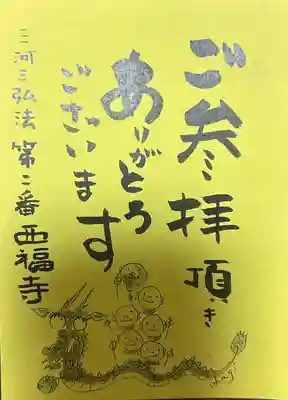 ご参拝頂き
ありがとう
ございます
三河三弘法 第二番 西福寺